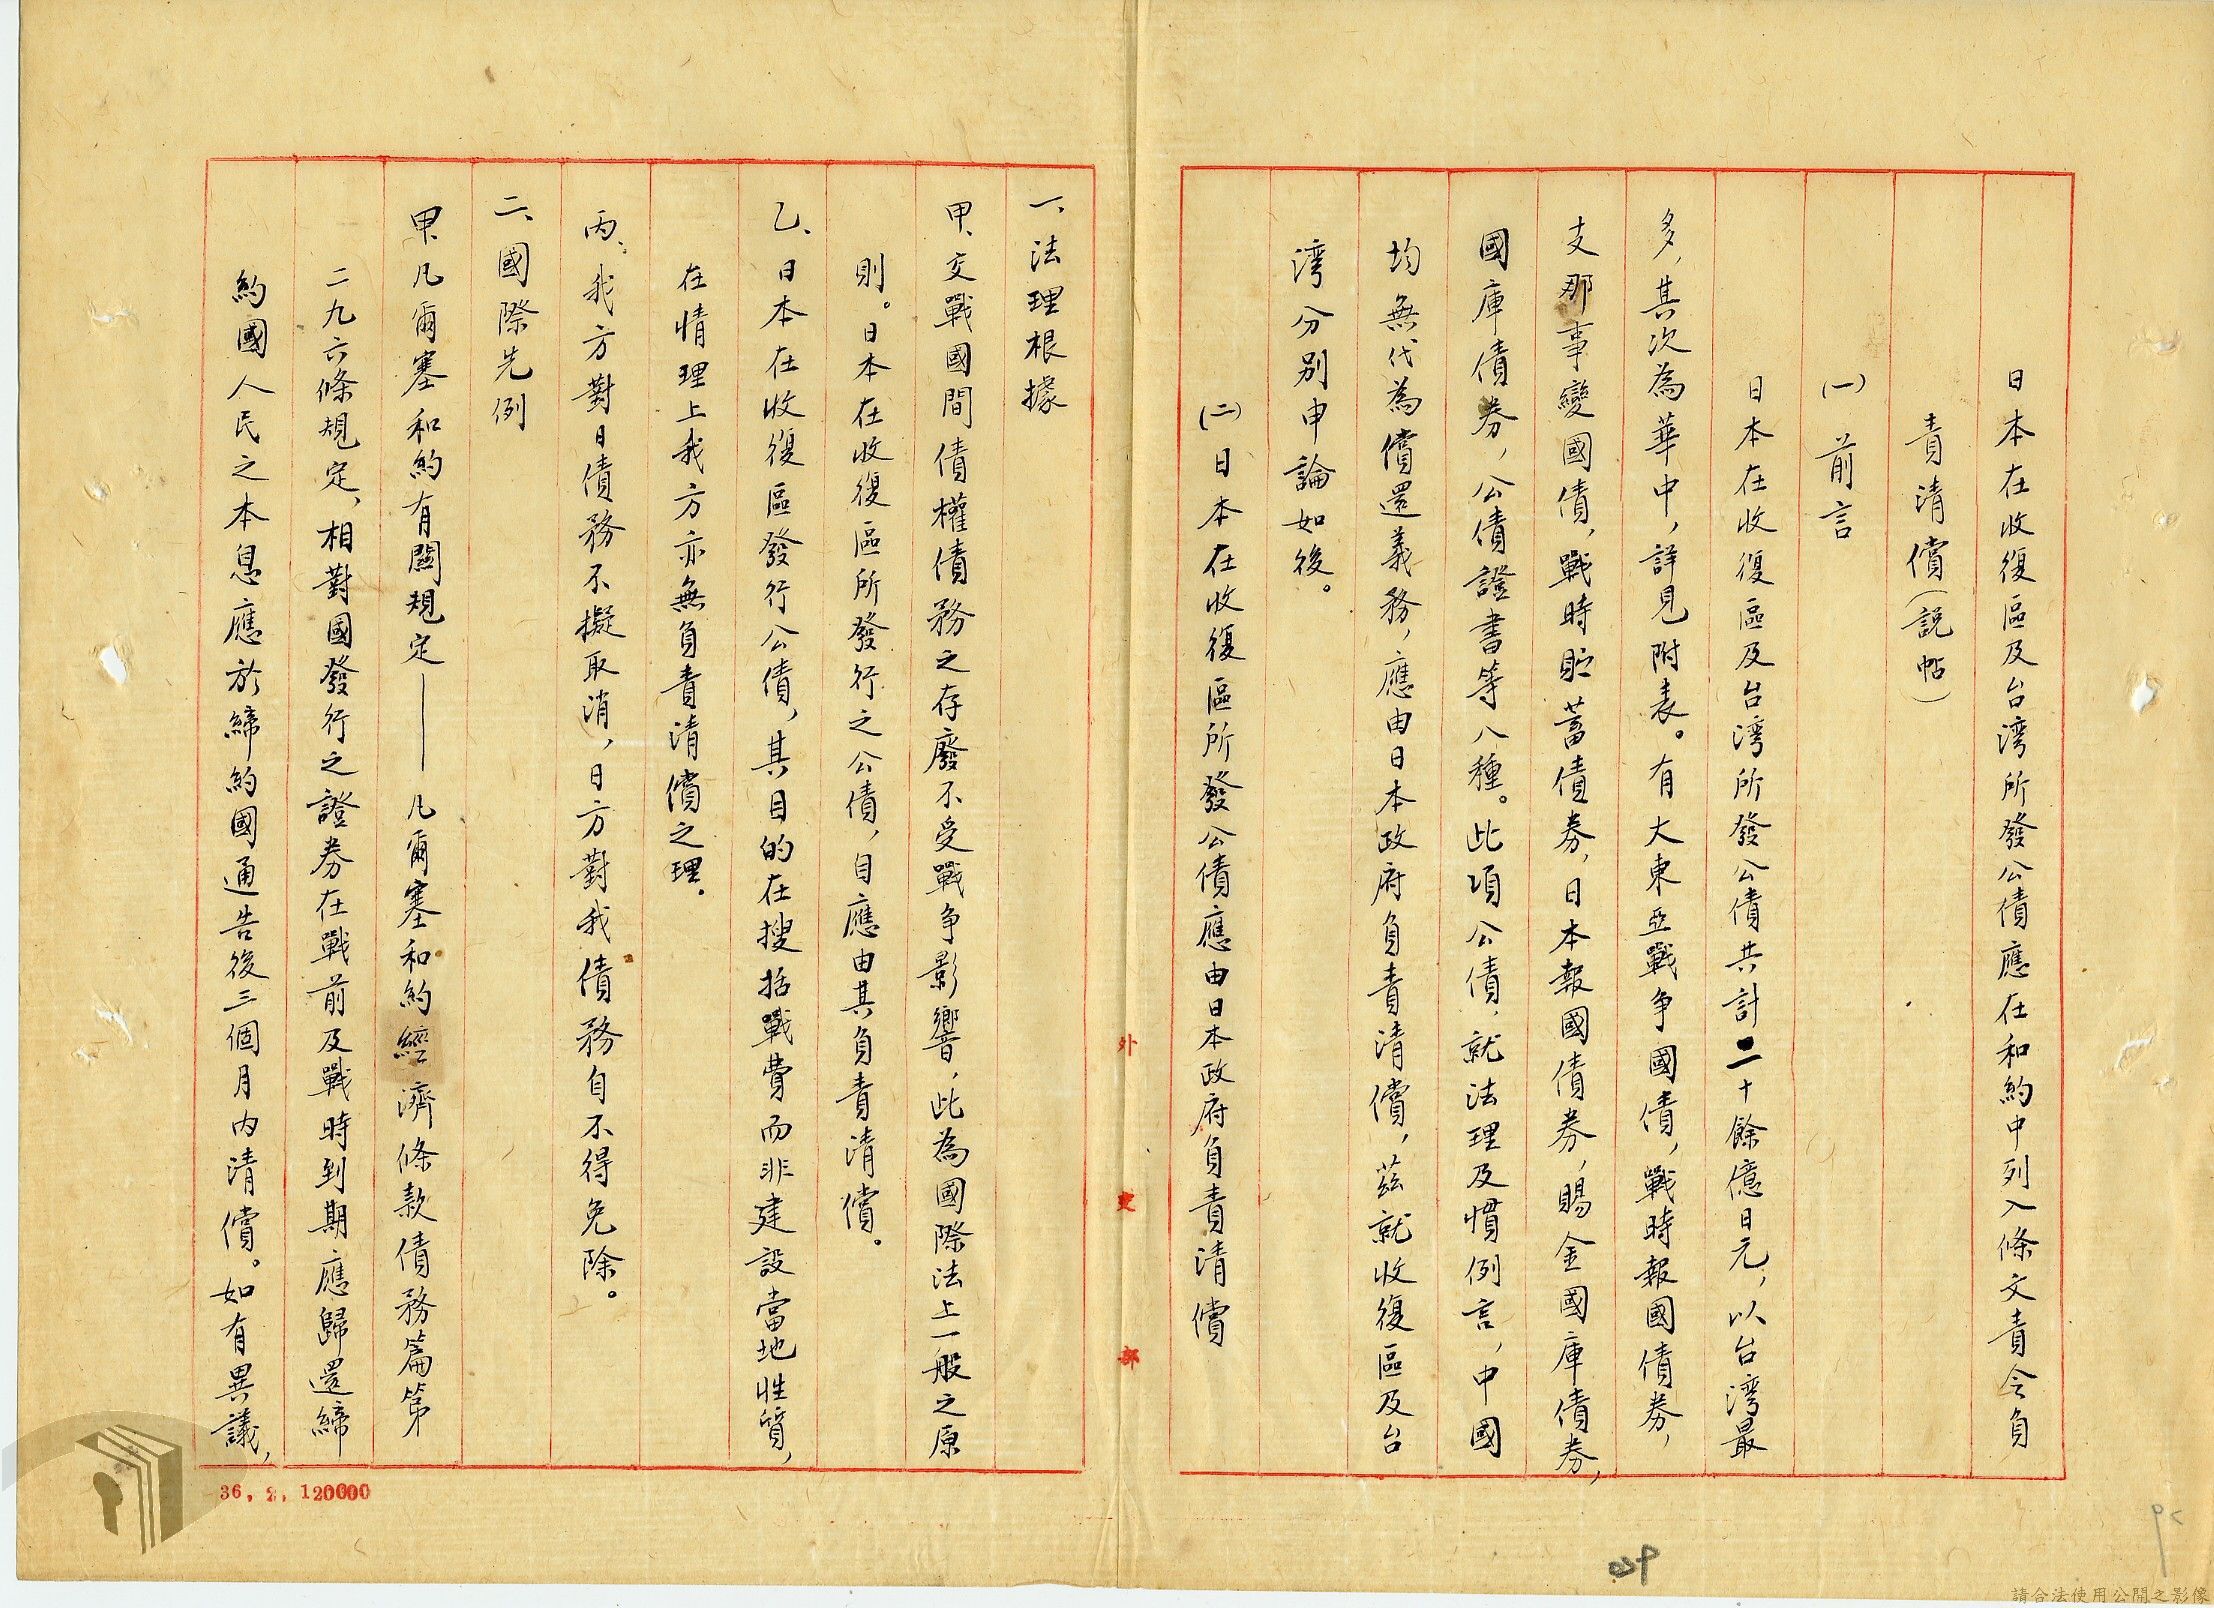 日本在收復區及台湾所發公債應在和約中列入條文責令負
責清償（説帖）
(一) 前言
日本在收復區及台湾所發公債共計二十餘億日元，以台湾最
多，其次為華中，詳見附表。有大東亞戰争國債，戰時報國債券，
支那事變國債，戰時貯蓄債券，日本報國債券，賜金國庫債券，
國庫債券，公債證書等八種。此項公債，就法理及慣例言，中國
均無代為償還義務，應由日本政府負責清償，茲就收復區及台
湾分別申論如後。
(二) 日本在收復區所發公債應由日本政府負責清償
一、法理根據
甲、交戰國間債權債務之存廢不受戰争影響，此為國際法上一般之原
則。日本在收復區所發行之公債，自應由其負責清償。
乙、日本在收復區發行公債，其目的在搜括戰費而非建設當地性質，
在情理上我方亦無負責清償之理。
丙、我方對日債務不擬取消，日方對我債務自不得免除。
二、國際先例
甲、凡爾塞和約有關規定——凡爾塞和約經濟條款債務篇第
二九六條規定，相對國發行之證券在戰前及戰時到期應歸還締
約國人民之本息應於締約國通告後三個月内清償。如有異議，
外交部
36, 2, 120000
請合法使用公開之影像